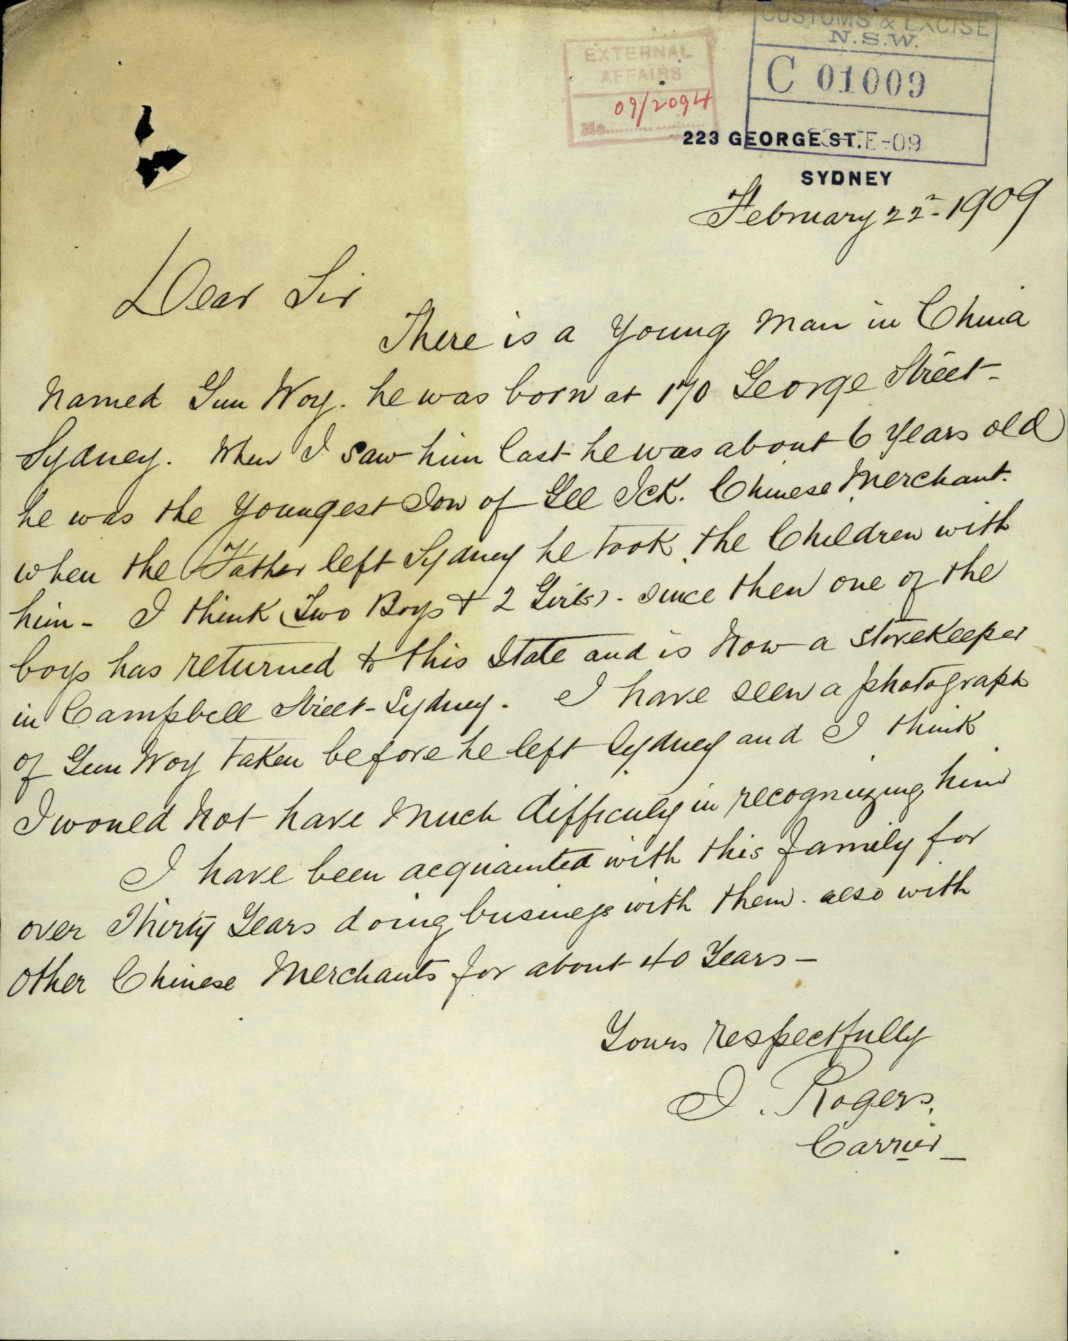 CUSTOMS & EXCISE
N.S.W.
EXTERNAL
AFFAIRS
C 01009
09/2094
No.
223 GEORGE ST.
E-09
SYDNEY
February 22nd 1909
Dear Sir
There is a Young Man in China
Named Gum Woy. he was born at 170 George Street-
Sydney. When I saw him last he was about 6 Years old
he was the Youngest Son of Gee Ick. Chinese Merchant.
when the Father left Sydney he took the Children with
him - I think (Two Boys & 2 Girls). since then one of the
boys has returned to this State and is Now a storekeeper
in Campbell Street-Sydney. I have seen a photograph
of Gum Woy taken before he left Sydney and I think
I would Not have Much difficulty in recognizing him
I have been acquainted with this family for
over Thirty Years doing business with them. also with
other Chinese Merchants for about 40 Years -
Yours respectfully
J. Rogers.
Carrier